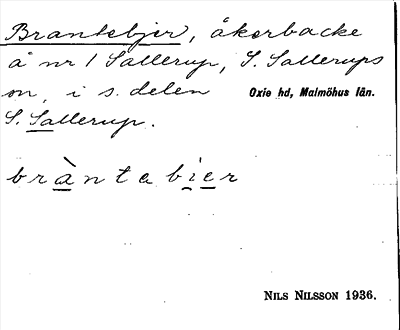 Brantebjer, åkerbacke
å nr 1 Sallerup, S. Sallerups
sn, i s. delen Oxie hd, Malmöhus län.
S. Sallerup.
bràntabier
NILS NILSSON 1936.